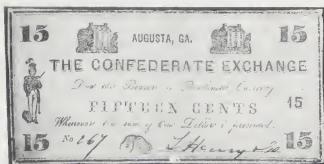 15 AUGUSTA, GA. 15
THE CONFEDERATE EXCHANGE
Due the Bearer in Current Currency
FIFTEEN CENTS 15
Whenever the sum of One Dollar is presented.
15 No 267 15